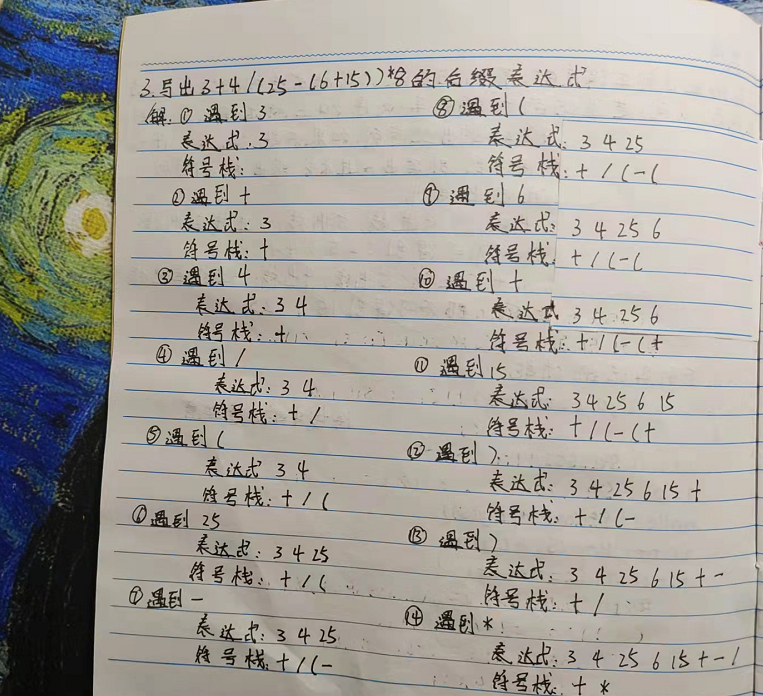 3.写出3+4/(25-(6+15))*8的后缀表达式
解:①遇到3
表达式:3
符号栈:
②遇到+
表达式:3
符号栈:+
③遇到4
表达式:3 4
符号栈:+
④遇到/
表达式:3 4
符号栈:+ /
⑤遇到(
表达式 3 4
符号栈:+ / (
⑥遇到25
表达式:3 4 25
符号栈:+ / (
⑦遇到-
表达式:3 4 25
符号栈:+ / ( -
⑧遇到(
表达式:3 4 25
符号栈:+ / ( - (
⑨遇到6
表达式:3 4 25 6
符号栈:+ / ( - (
⑩遇到+
表达式 3 4 25 6
符号栈:+ / ( - ( +
⑪遇到15
表达式:3 4 25 6 15
符号栈:+ / ( - ( +
⑫遇到)
表达式:3 4 25 6 15 +
符号栈:+ / ( -
⑬遇到)
表达式:3 4 25 6 15 + -
符号栈:+ /
⑭遇到*
表达式:3 4 25 6 15 + - /
符号栈:+ *